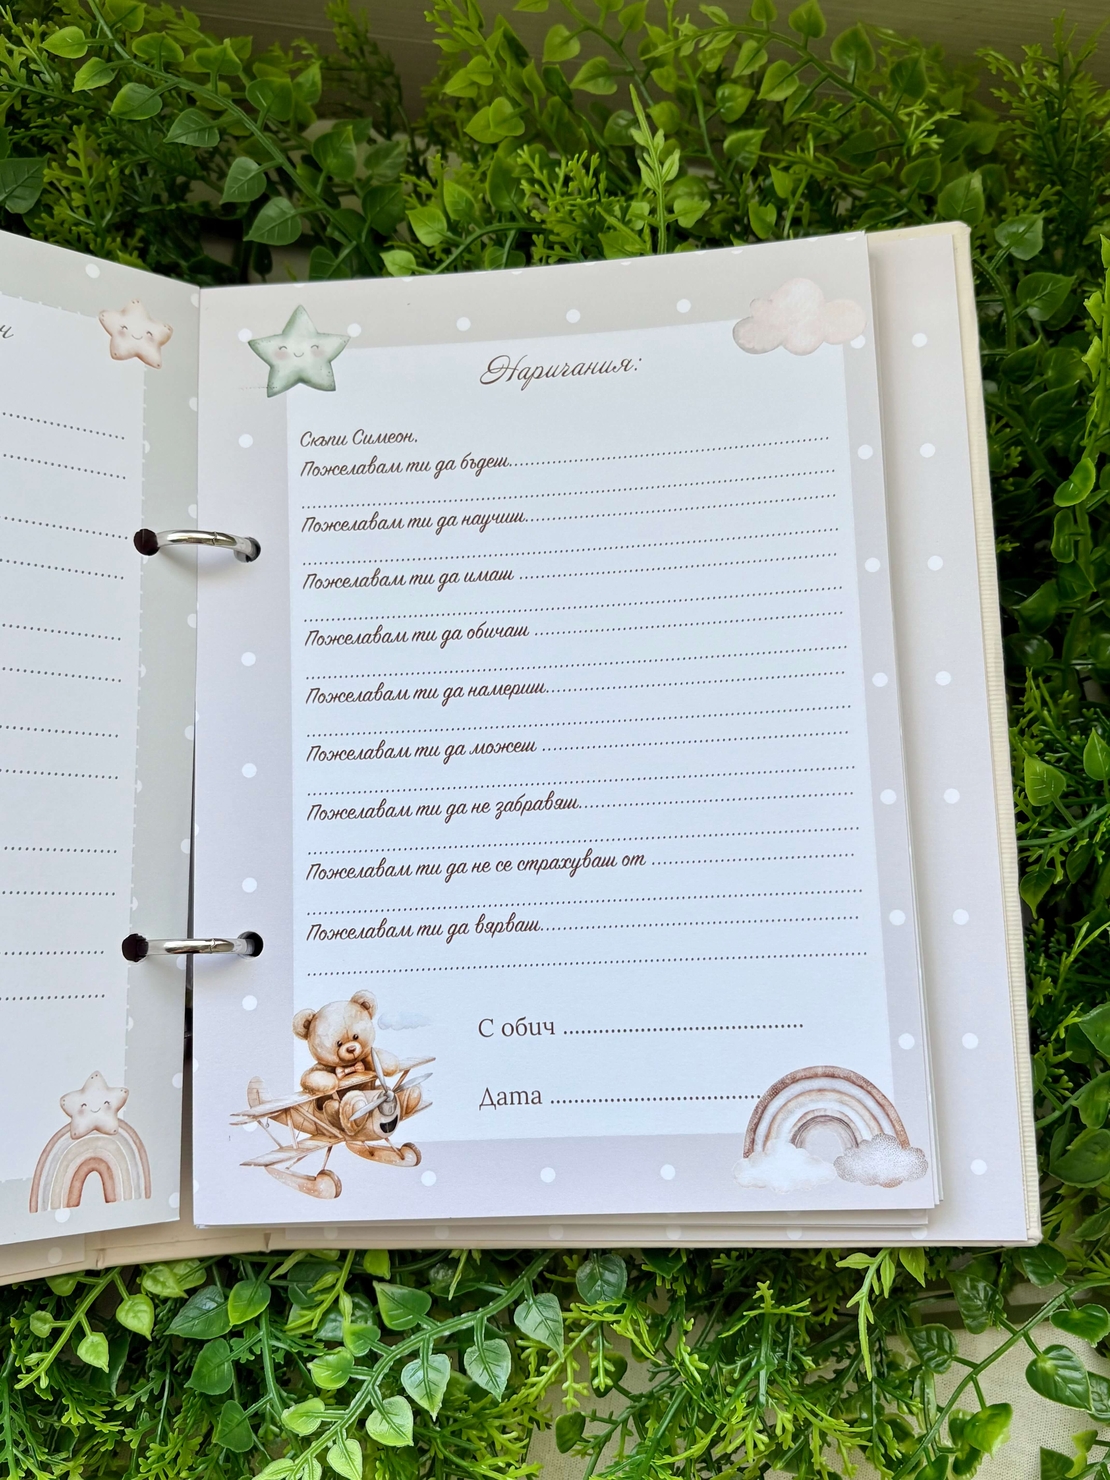 Наричания:
Скъпи Симеон,
Пожелавам ти да бъдеш..........
Пожелавам ти да научиш..........
Пожелавам ти да имаш ..........
Пожелавам ти да обичаш ..........
Пожелавам ти да намериш..........
Пожелавам ти да можеш ..........
Пожелавам ти да не забравяш..........
Пожелавам ти да не се страхуваш от ..........
Пожелавам ти да вярваш..........
С обич ..........
Дата ..........